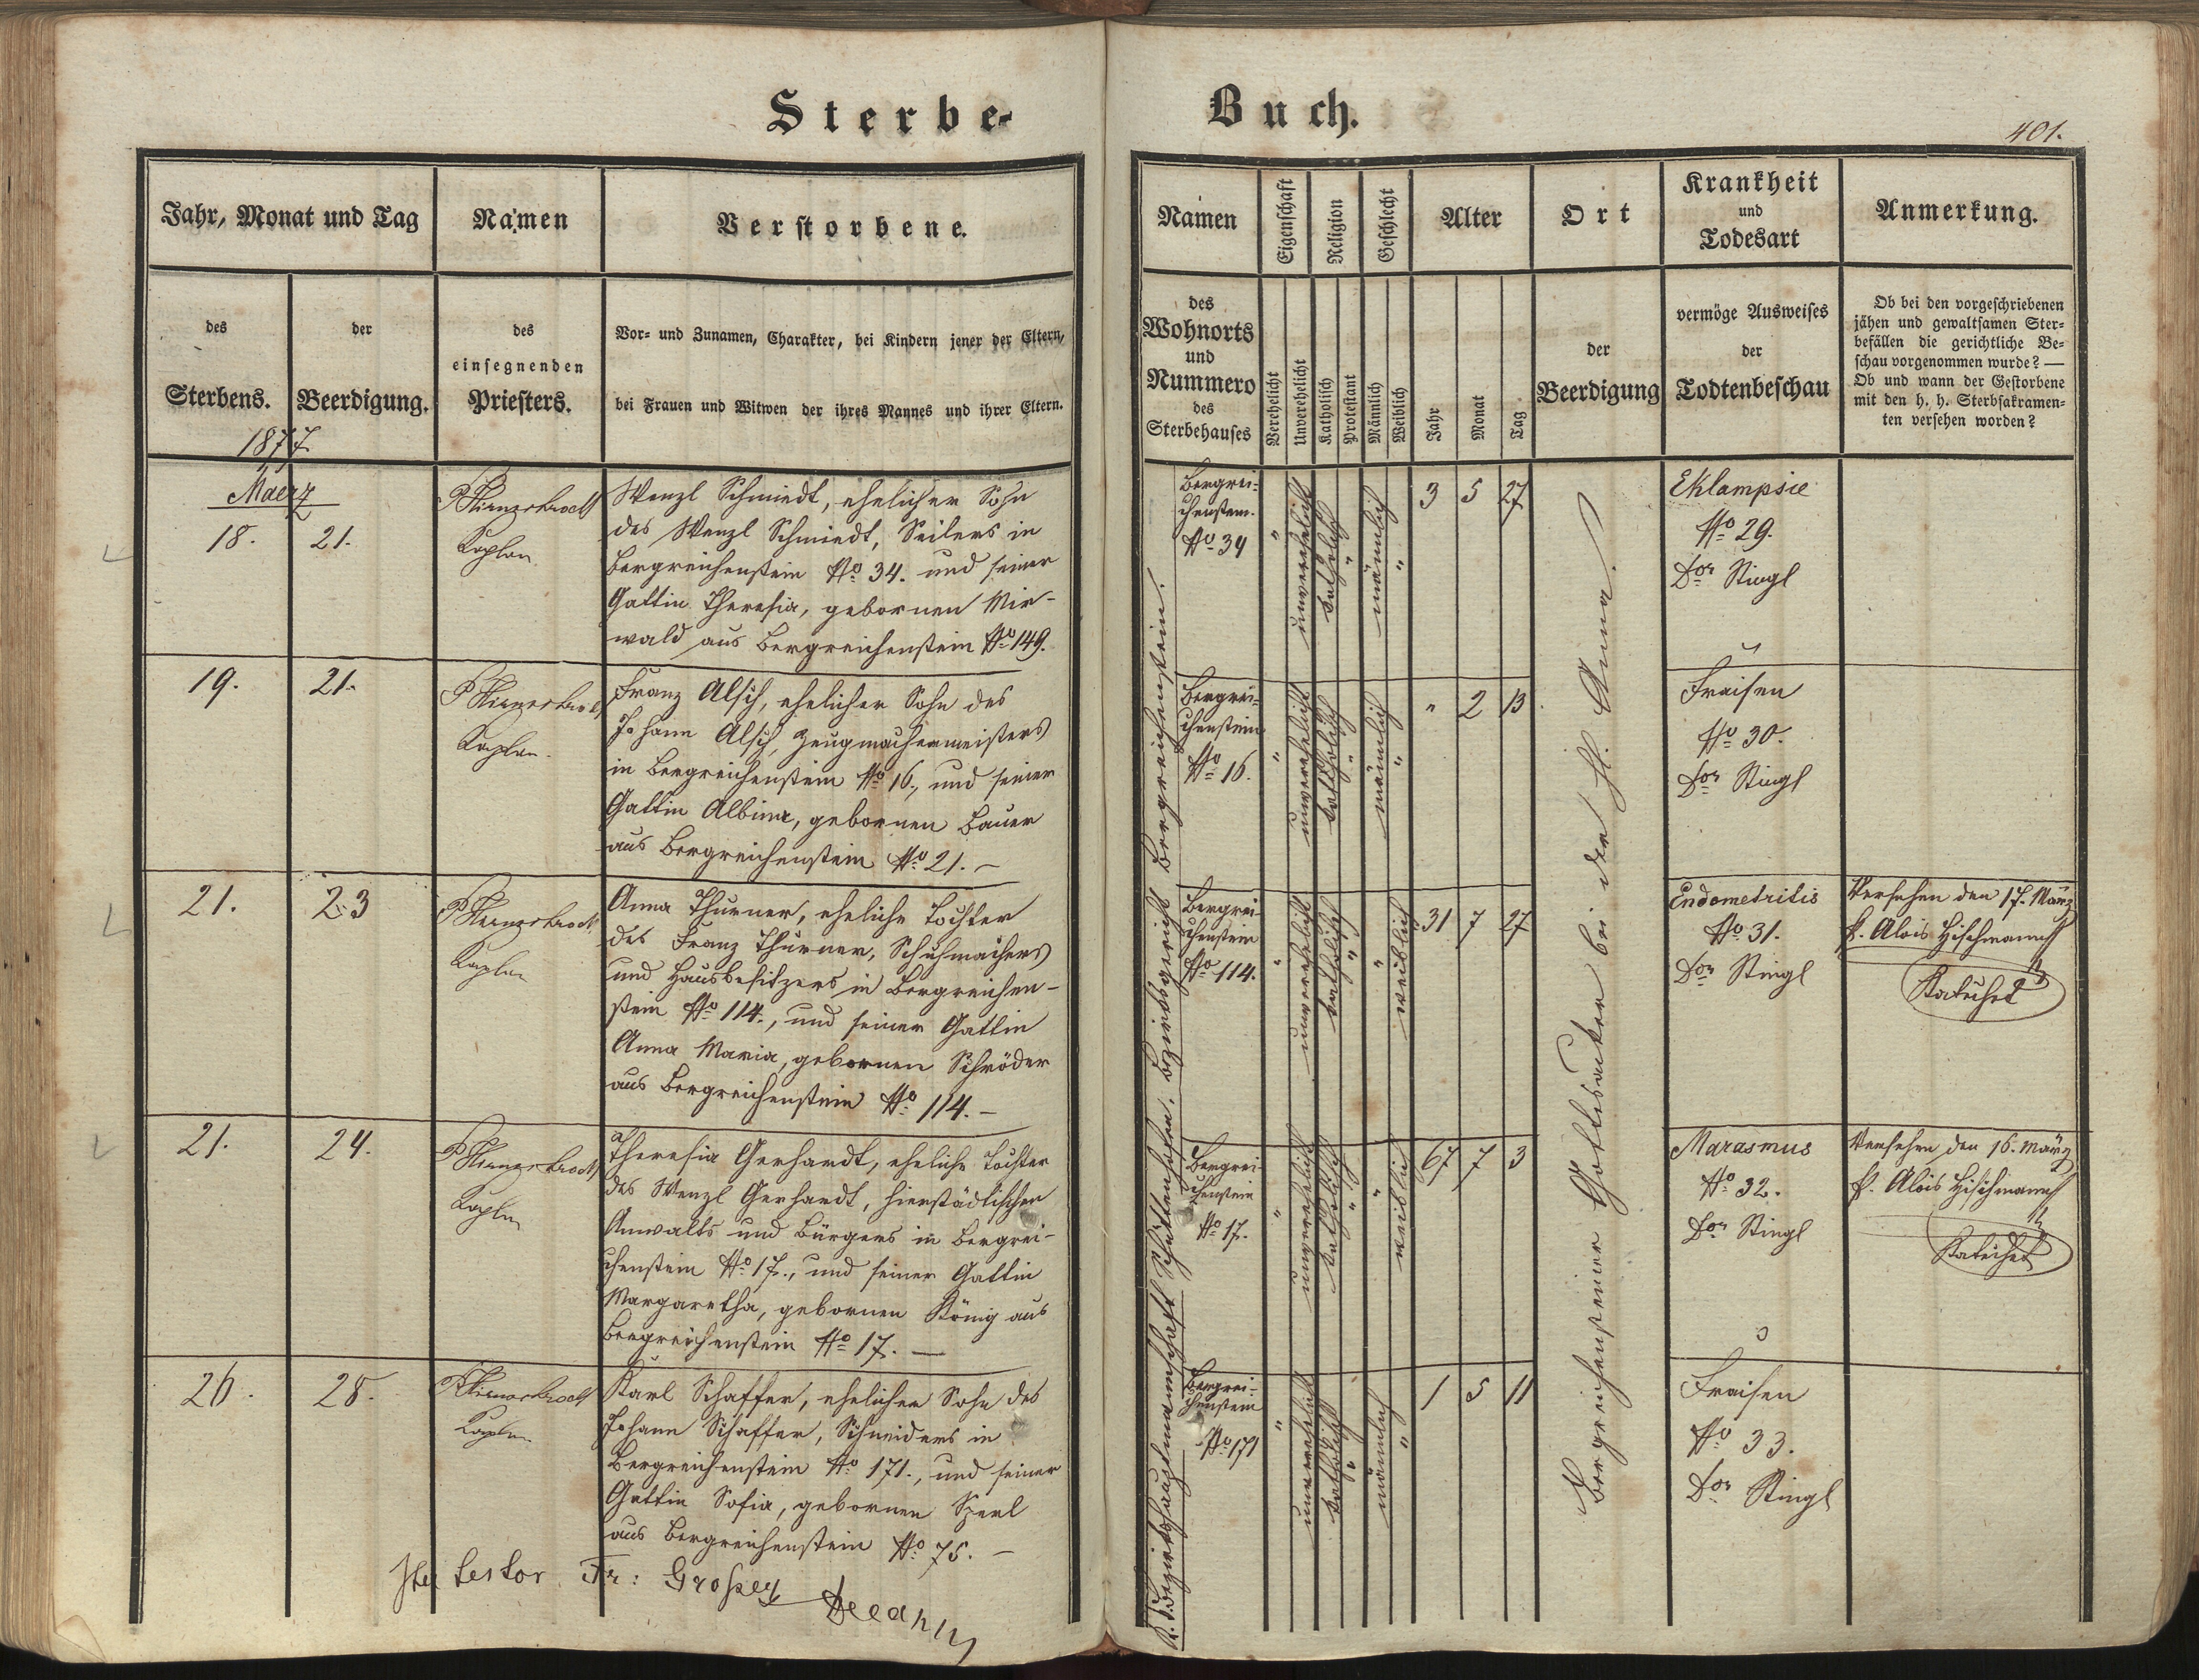 Sterbe-
Jahr, Monat und Tag
Namen
Verstorbene.
des
Sterbens.
der
Beerdigung.
des
einsegnenden
Priesters.
Vor- und Zunamen, Charakter, bei Kindern jener der Eltern,
bei Frauen und Witwen der ihres Mannes und ihrer Eltern.
1877
Maerz
18.
21.
Kaplan
Wenzl Schmiedt, ehelicher Sohn
des Wenzl Schmiedt, Seilers in
Bergreichenstein No 34. und seiner
Gattin Theresia, gebornen Mir-
wald aus Bergreichenstein No 149.
19.
21.
Kaplan.
Franz Alsch, ehelicher Sohn des
Johann Alsch, Zeugmachermeisters
in Bergreichenstein No 16., und seiner
Gattin Albina, gebornen Bauer
aus Bergreichenstein No 21. –
21.
23
Kaplan
Anna Thurner, eheliche Tochter
des Franz Thurner, Schuhmachers
und Hausbesitzers in Bergreichen-
stein No 114., und seiner Gattin
Anna Maria, gebornen Schröder
aus Bergreichenstein No 114. –
21.
24.
Kaplan
Theresia Gerhardt, eheliche Tochter
des Wenzl Gerhardt, hierstädtischen
Anwalts und Bürgers in Bergrei-
chenstein No 17., und seiner Gattin
Margaretha, gebornen König aus
Bergreichenstein No 17. –
26.
28.
Kaplan
Karl Schaffer, ehelicher Sohn des
Johann Schaffer, Schneiders in
Bergreichenstein No 171., und seiner
Gattin Sofia, gebornen Sperl
aus Bergreichenstein No 75. –
testor Fr:
Dechant
Buch.
401.
Namen
Eigenschaft
Religion
Geschlecht
Alter
Ort
Krankheit
und
Todesart
Anmerkung.
des
Wohnorts
und
Nummero
des
Sterbehauses
Verehelicht
Unverehelicht
Katholisch
Protestant
Männlich
Weiblich
Jahr
Monat
Tag
der
Beerdigung
vermöge Ausweises
der
Todtenbeschau
Ob bei den vorgeschriebenen
jähen und gewaltsamen Ster-
befällen die gerichtliche Be-
schau vorgenommen wurde? —
Ob und wann der Gestorbene
mit den h. h. Sterbsakramen-
ten versehen worden?
K. k. Bezirkshauptmannschaft Schüttenhofen. Bezirksgericht Bergreichenstein.
Bergreichensteiner Gottesacker bei der hl. Anna.
Bergrei-
chenstein.
No 34
"
unverehelicht
katholisch
"
männlich
"
3 5 27
Eklampsie
No 29.
Dor Stingl
Bergrei-
chenstein
No 16.
"
unverehelicht
katholisch
"
männlich
"
" 2 13
Fraisen
No 30.
Dor Stingl
Bergrei-
chenstein
No 114.
"
unverehelicht
katholisch
"
"
weiblich
31 7 27
Endometritis
No 31.
Dor Stingl
Versehen den 17. März
P. Alois Hischmann
Katechet
Bergrei-
chenstein
No 17.
"
unverehelicht
katholisch
"
"
weiblich
67 7 3
Marasmus
No 32.
Dor Stingl
Versehen den 16. März
P. Alois Hischmann
Katechet
Bergrei-
chenstein
No 171
"
unverehelicht
katholisch
"
männlich
"
1 5 11
Fraisen
No 33.
Dor Stingl